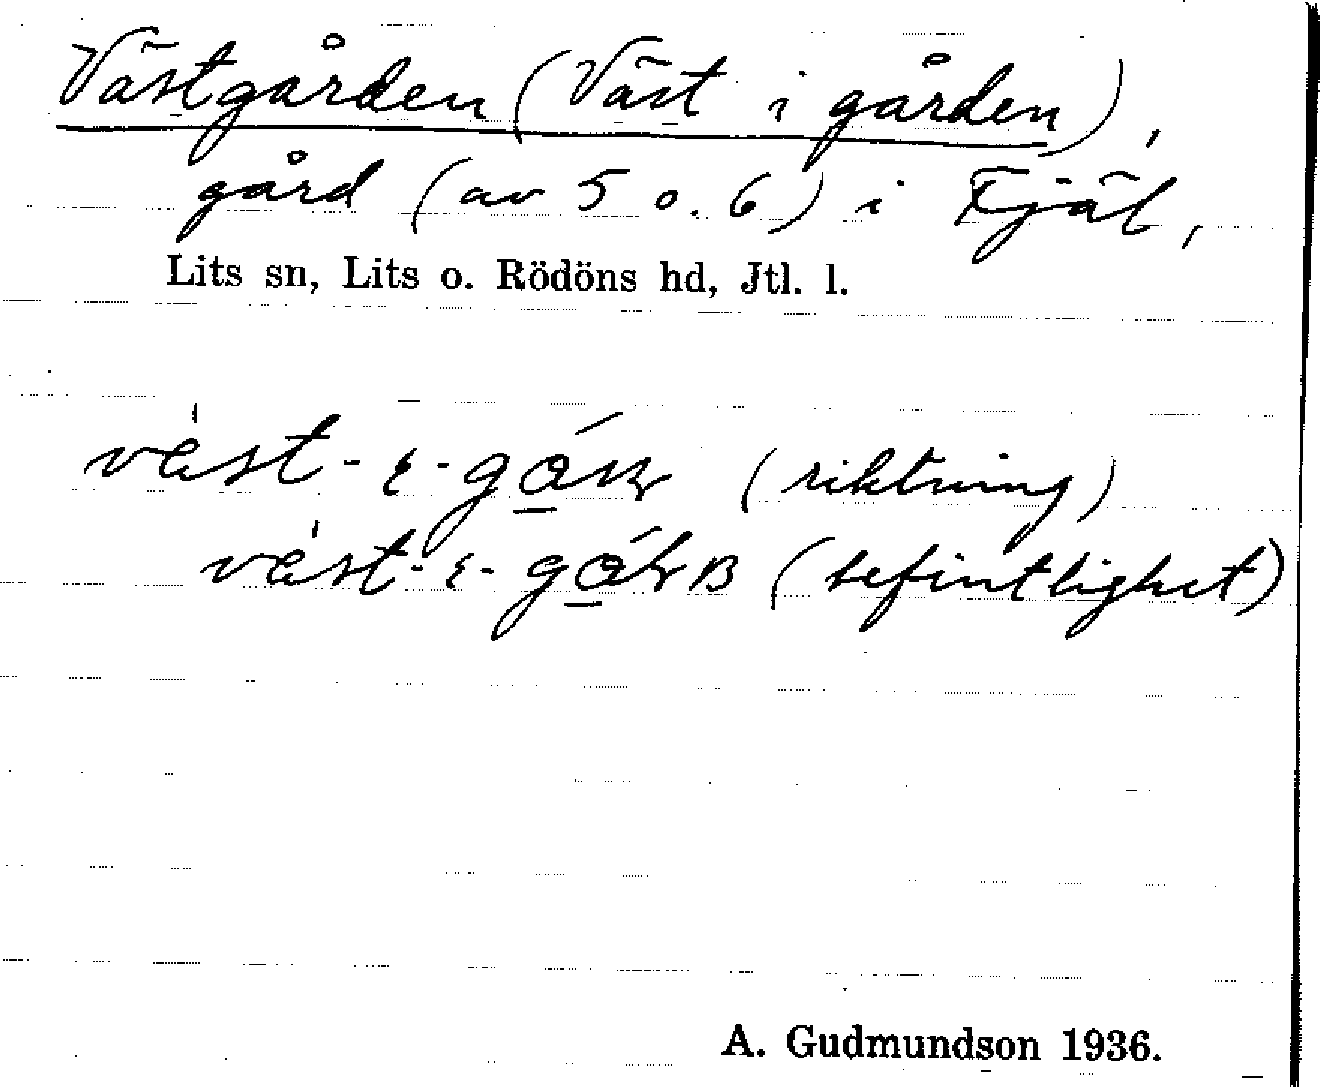 Västgården (Väst i gården),
gård (av 5 o. 6) i Kjäl,
Lits sn, Lits o. Rödöns hd, Jtl. l.
(riktning)
(befintlighet)
A. Gudmundson 1936.